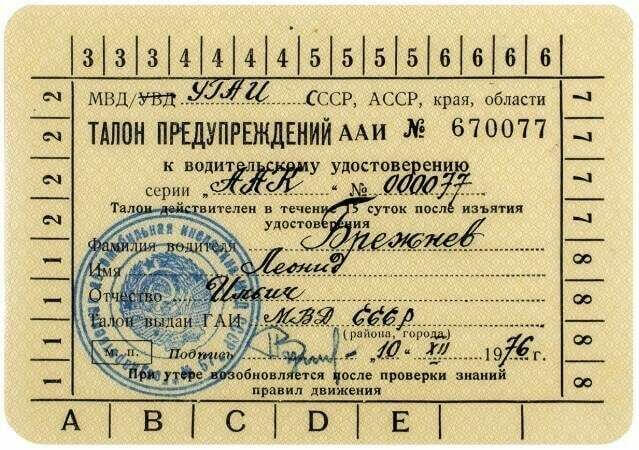 3 3 3 3 4 4 4 4 5 5 5 5 6 6 6 6
2 2 2 2 1 1 1 1
7 7 7 7 8 8 8 8
МВД/УВД УГАИ СССР, АССР, края, области
ТАЛОН ПРЕДУПРЕЖДЕНИЙ ААИ № 670077
к водительскому удостоверению
серии „ААК“ № 000077
Талон действителен в течение 15 суток после изъятия
удостоверения
Фамилия водителя Брежнев
Имя Леонид
Отчество Ильич
Талон выдан ГАИ МВД СССР
(района, города)
М. П. Подпись „10“ XII 1976 г.
При утере возобновляется после проверки знаний
правил движения
A B C D E